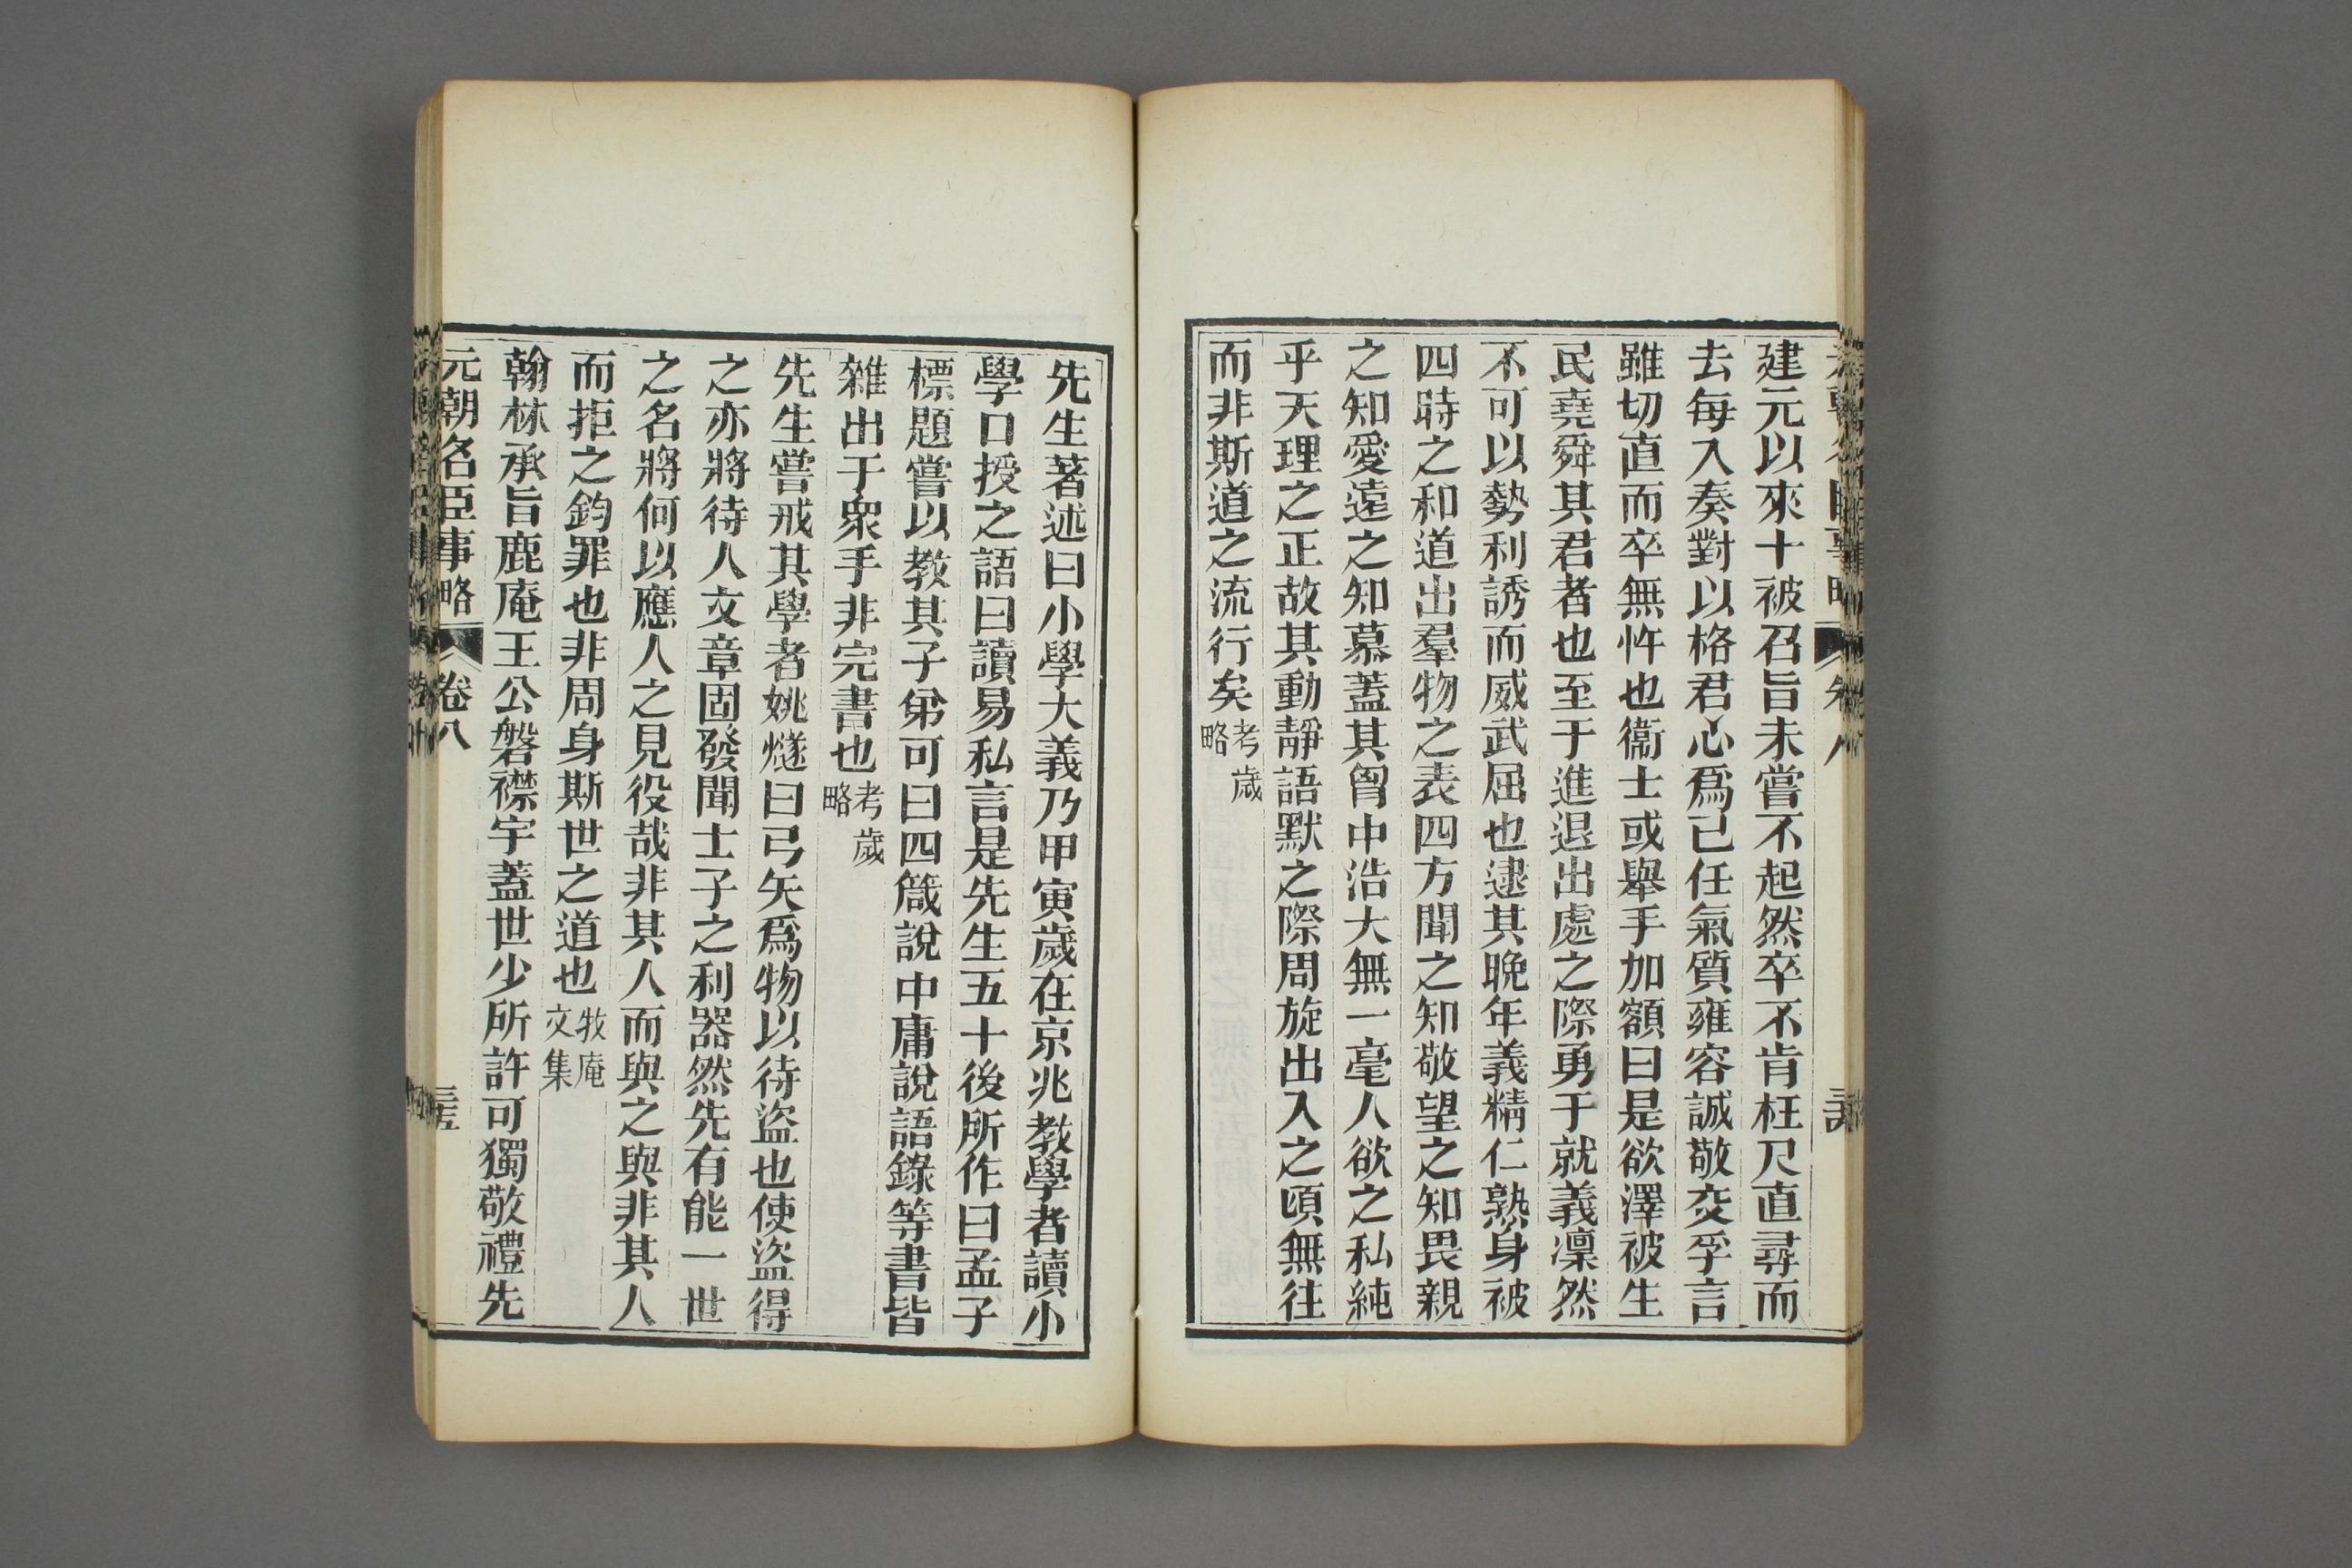 建元以來十被召旨未嘗不起然卒不肯枉尺直尋而
去每入奏對以格君心爲己任氣質雍容誠敬交孚言
雖切直而卒無忤也衞士或舉手加額曰是欲澤被生
民堯舜其君者也至于進退出處之際勇于就義凜然
不可以勢利誘而威武屈也逮其晚年義精仁熟身被
四時之和道出羣物之表四方聞之知敬望之知畏親
之知愛遠之知慕蓋其胷中浩大無一毫人欲之私純
乎天理之正故其動靜語默之際周旋出入之頃無往
而非斯道之流行矣考歲略
先生著述曰小學大義乃甲寅歲在京兆教學者讀小
學口授之語曰讀易私言是先生五十後所作曰孟子
標題嘗以教其子弟可曰四箴說中庸說語錄等書皆
雜出于衆手非完書也考歲略
先生嘗戒其學者姚燧曰弓矢爲物以待盜也使盜得
之亦將待人文章固發聞士子之利器然先有能一世
之名將何以應人之見役哉非其人而與之與非其人
而拒之鈞罪也非周身斯世之道也牧庵文集
翰林承旨鹿庵王公磐襟宇蓋世少所許可獨敬禮先
元朝名臣事略 卷八 三五